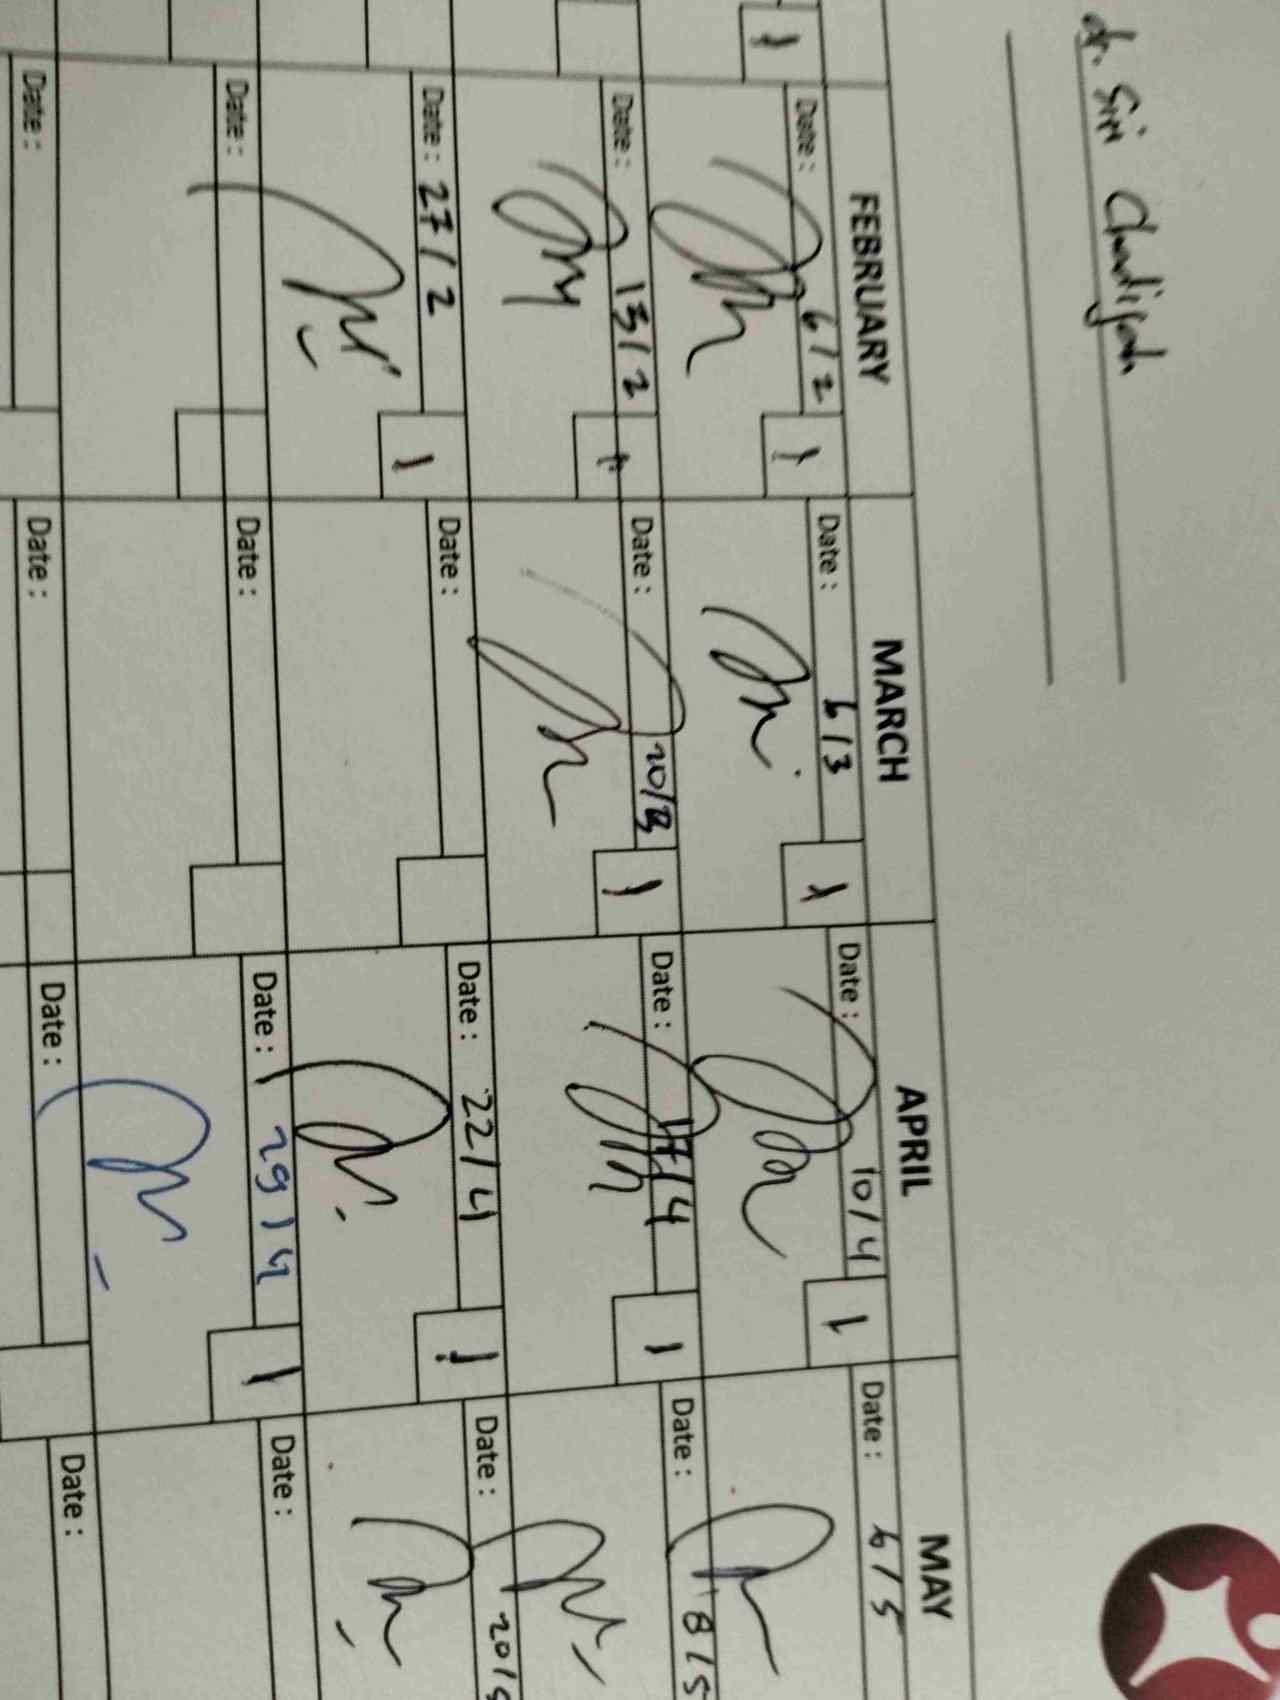 dr. Siti
FEBRUARY MARCH APRIL MAY
1
Date: 6/2 1 Date: 6/3 1 Date: 10/4 1 Date: 6/5
Date: 13/2 1 Date: 1 Date: 17/4 1 Date: 8/5
Date: 27/2 1 Date: Date: 22/4 1 Date: 20/5
Date: Date: Date: 29/4 1 Date:
Date: Date: Date: Date: